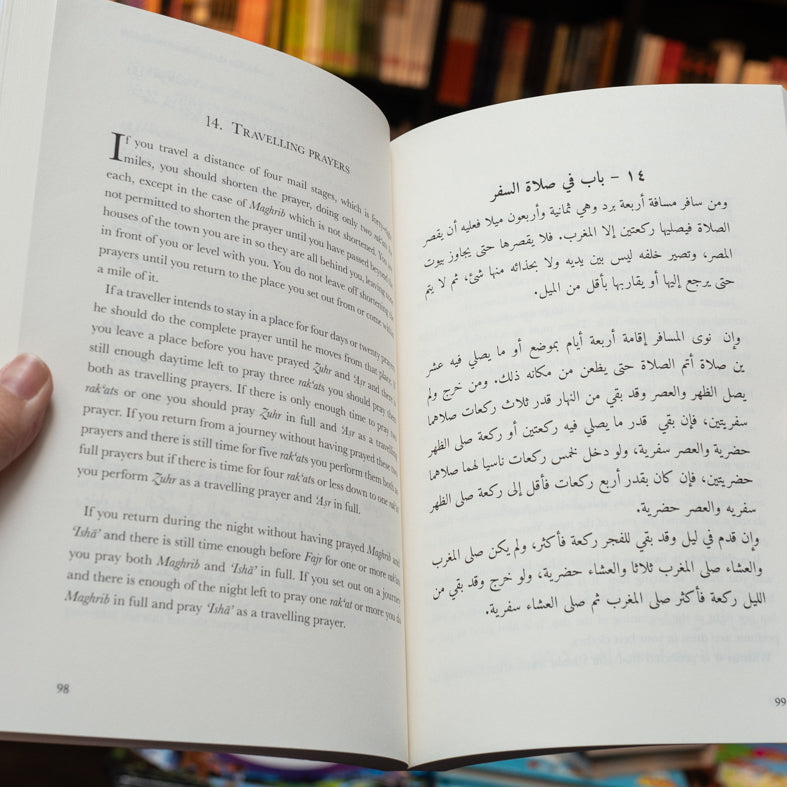 14. TRAVELLING PRAYERS
If you travel a distance of four mail stages, which is forty-eight
miles, you should shorten the prayer, doing only two rak'ats
each, except in the case of Maghrib which is not shortened. You are
not permitted to shorten the prayer until you have passed beyond the
houses of the town you are in so they are all behind you, leaving none
in front of you or level with you. You do not leave off shortening the
prayers until you return to the place you set out from or come within
a mile of it.
If a traveller intends to stay in a place for four days or twenty prayers
he should do the complete prayer until he moves from that place. If
you leave a place before you have prayed Ẓuhr and 'Aṣr and there is
still enough daytime left to pray three rak'ats you should pray them
both as travelling prayers. If there is only enough time to pray two
rak'ats or one you should pray Ẓuhr in full and 'Aṣr as a travelling
prayer. If you return from a journey without having prayed these two
prayers and there is still time for five rak'ats you perform them both as
full prayers but if there is time for four rak'ats or less down to one rak'at
you perform Ẓuhr as a travelling prayer and 'Aṣr in full.
If you return during the night without having prayed Maghrib and
'Ishā' and there is still time enough before Fajr for one or more rak'ats
you pray both Maghrib and 'Ishā' in full. If you set out on a journey
and there is enough of the night left to pray one rak'at or more you do
Maghrib in full and pray 'Ishā' as a travelling prayer.
98
١٤ – باب في صلاة السفر
ومن سافر مسافة أربعة برد وهي ثمانية وأربعون ميلا فعليه أن يقصر
الصلاة فيصليها ركعتين إلا المغرب. فلا يقصرها حتى يجاوز بيوت
المصر، وتصير خلفه ليس بين يديه ولا بحذائه منها شئ، ثم لا يتم
حتى يرجع إليها أو يقاربها بأقل من الميل.
وإن نوى المسافر إقامة أربعة أيام بموضع أو ما يصلي فيه عشر
ين صلاة أتم الصلاة حتى يظعن من مكانه ذلك. ومن خرج ولم
يصل الظهر والعصر وقد بقي من النهار قدر ثلاث ركعات صلاهما
سفريتين، فإن بقي قدر ما يصلي فيه ركعتين أو ركعة صلى الظهر
حضرية والعصر سفرية، ولو دخل لخمس ركعات ناسيا لهما صلاهما
حضريتين، فإن كان بقدر أربع ركعات فأقل إلى ركعة صلى الظهر
سفريه والعصر حضرية.
وإن قدم في ليل وقد بقي للفجر ركعة فأكثر، ولم يكن صلى المغرب
والعشاء صلى المغرب ثلاثا والعشاء حضرية، ولو خرج وقد بقي من
الليل ركعة فأكثر صلى المغرب ثم صلى العشاء سفرية.
99